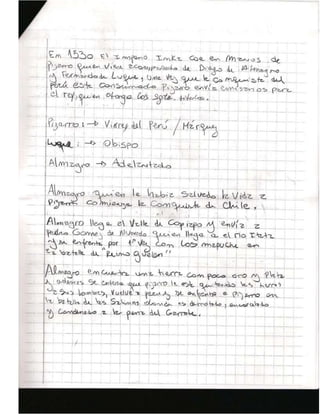 En 1530 El Imperio Inka Cae en Manos de
Pizarro quien viene acompañado de Diego de Almagro
y Fernando de Luque, una vez que la conquista del
Perú está consumada Pizarro envía emisarios para
el rey, quien otorga los sgts títulos.
Pizarro: → Virrey del Perú / Márquez
Luque: → Obispo
Almagro → Adelantado
Almagro quien le había salvado la vida a
Pizarro comienza la Conquista de Chile.
Almagro llega al Valle de Copiapo y envía a
Pedro Gomez de Alvarado quien llega a el río Itata
y se enfrenta por 1° vez con los mapuche en
la batalla de "Reino Guelen"
Almagro encuentra una tierra con poco oro y Plata
y además se entera que Pizarro le está quitando las tierras
de sus hombres, vuelve a Perú y se enfrenta a Pizarro en
la batalla de las Salinas donde es derrotado, encarcelado
y condenado a la pena del Garrote.